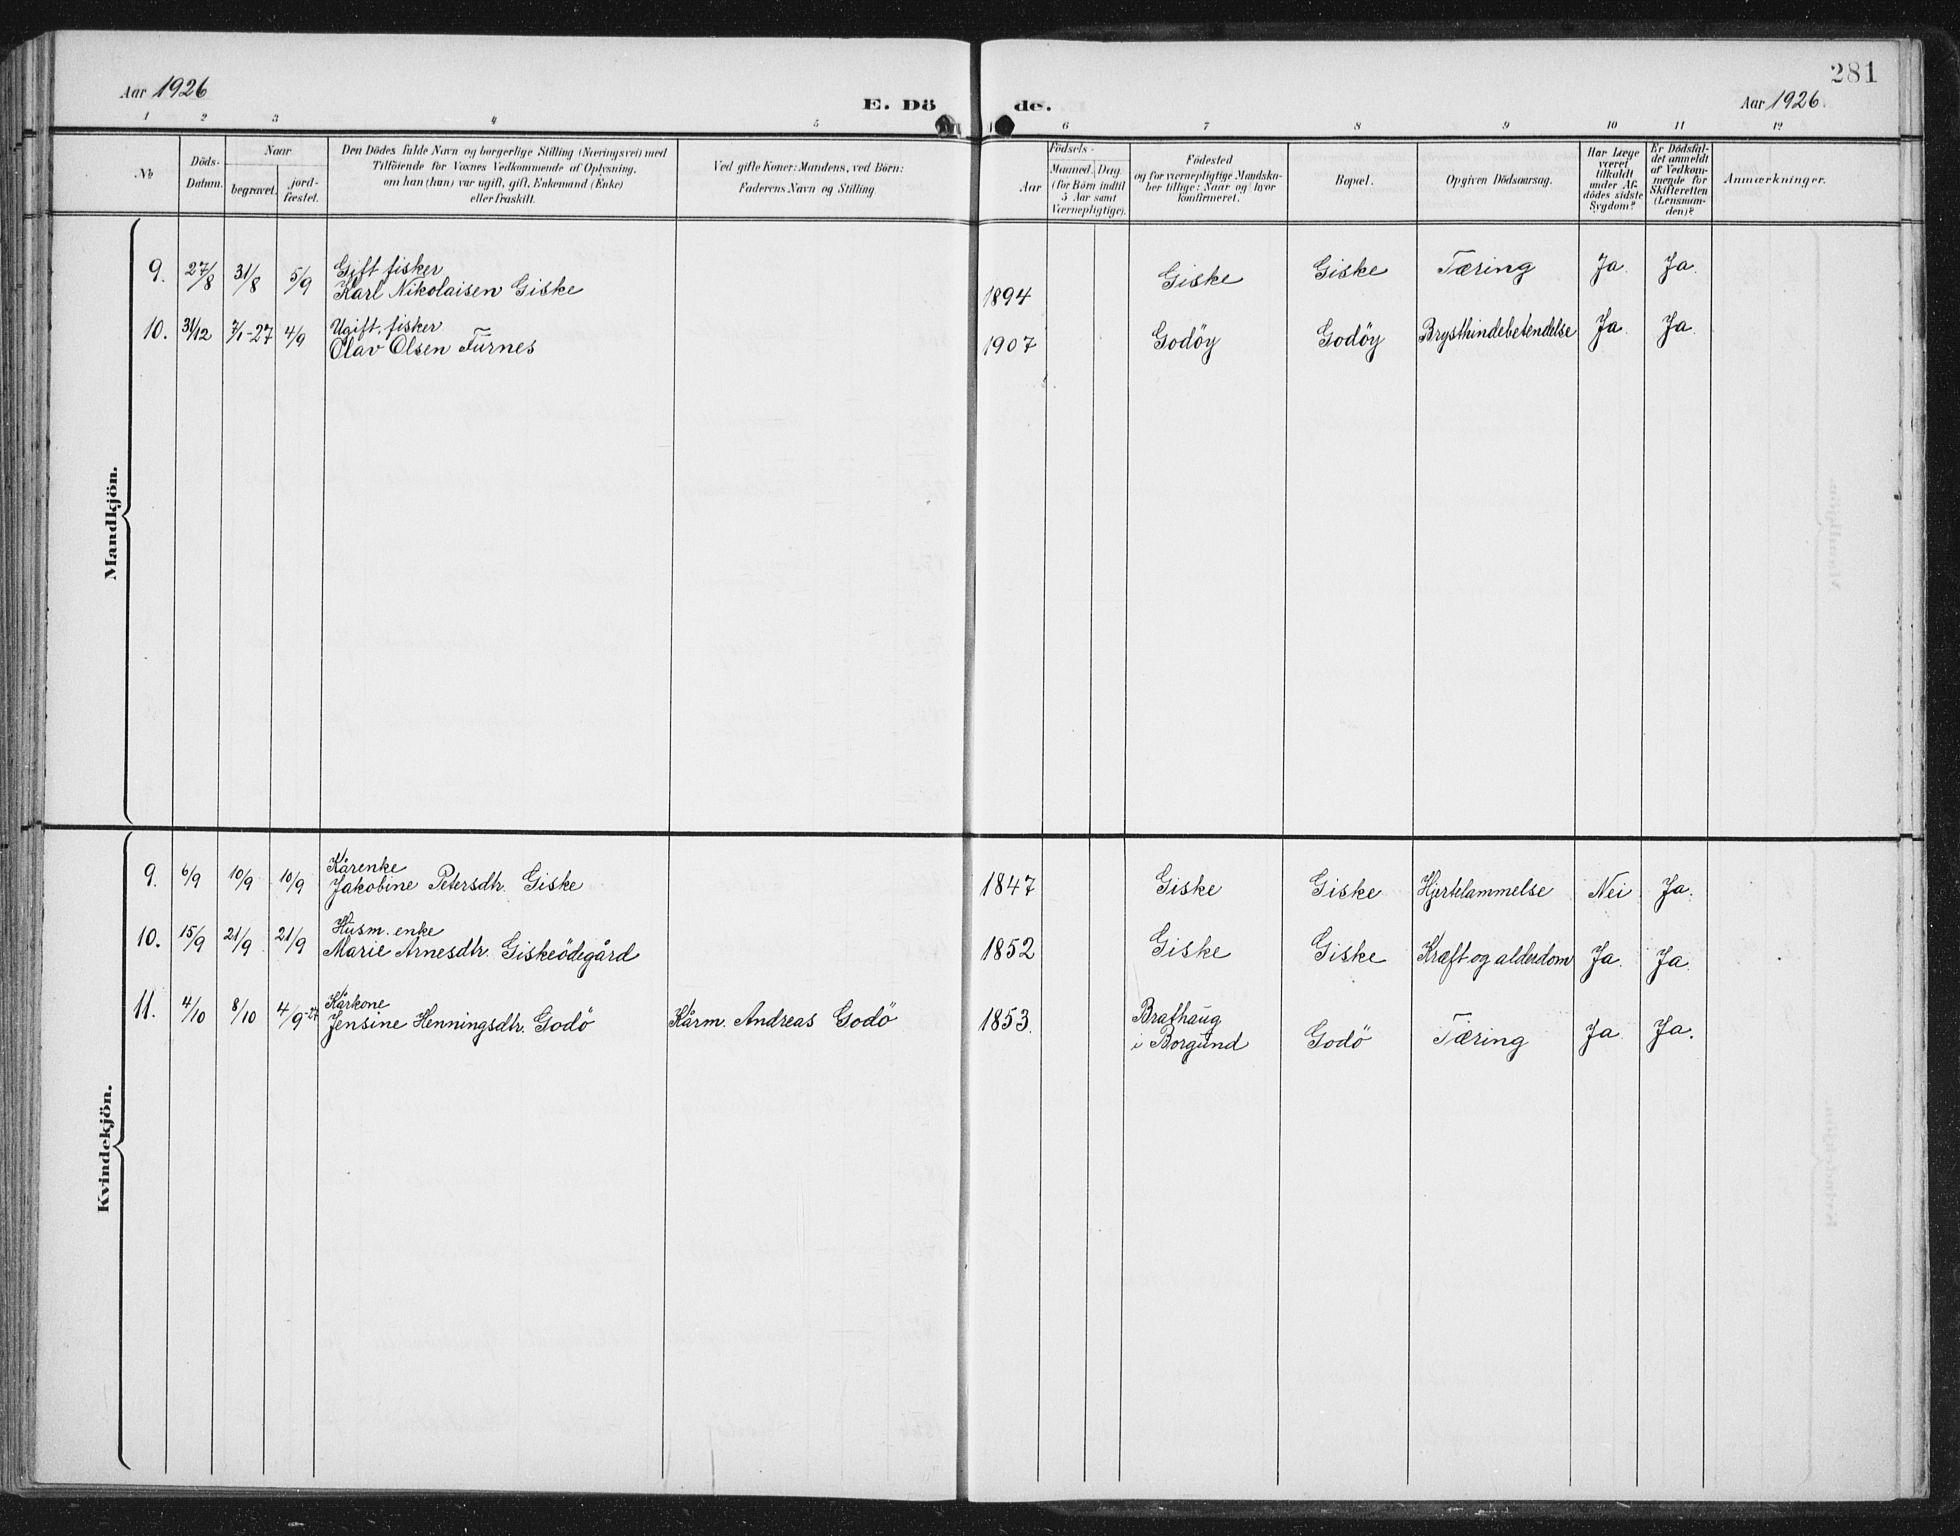 Aar 1926
E. Döde.
Aar 1926.
281
1 2 3 4 5 6 7 8 9 10 11 12
No
Döds-
Datum.
Naar
begravet.
jord-
fæstet.
Den Dödes fulde Navn og borgerlige Stilling (Næringsvei) med
Tilföiende for Voxnes Vedkommende af Oplysning,
om han (hun) var ugift, gift, Enkemand (Enke)
eller fraskilt.
Ved gifte Koner: Mandens, ved Börn:
Faderens Navn og Stilling.
Födsels-
Aar
Maaned.
Dag
(for Börn indtil
5 Aar samt
Værnepligtige).
Födested
og for værnepligtige Mandska-
ber tillige: Naar og hvor
konfirmeret.
Bopæl.
Opgiven Dödsaarsag.
Har Læge
været
tilkaldt
under Af-
dödes sidste
Sygdom?
Er Dödsfal-
det anmeldt
af Vedkom-
mende for
Skifteretten
(Lensman-
den)?
Anmærkninger.
Mandkjön.
9. 27/8 31/8 5/9 Gift fisker
Karl Nikolaisen Giske 1894 Giske Giske Tæring Ja. Ja.
10. 31/12 7/1-27 4/9 Ugift. fisker
Olav Olsen Furnes 1907 Godöy Godöy Brysthindebetendelse Ja. Ja.
Kvindekjön.
9. 6/9 10/9 10/9 Kårenke
Jakobine Petersdtr. Giske 1847 Giske Giske Hjertelammelse Nei Ja.
10. 15/9 21/9 21/9 Husm. enke
Marie Arnesdtr. Giskeödegård 1852 Giske Giske Kræft og alderdom Ja. Ja.
11. 4/10 8/10 4/9-27 Kårkone
Jensine Henningsdtr. Godö Kårm. Andreas Godö 1853. Brathaug
i Borgund Godö Tæring Ja Ja.